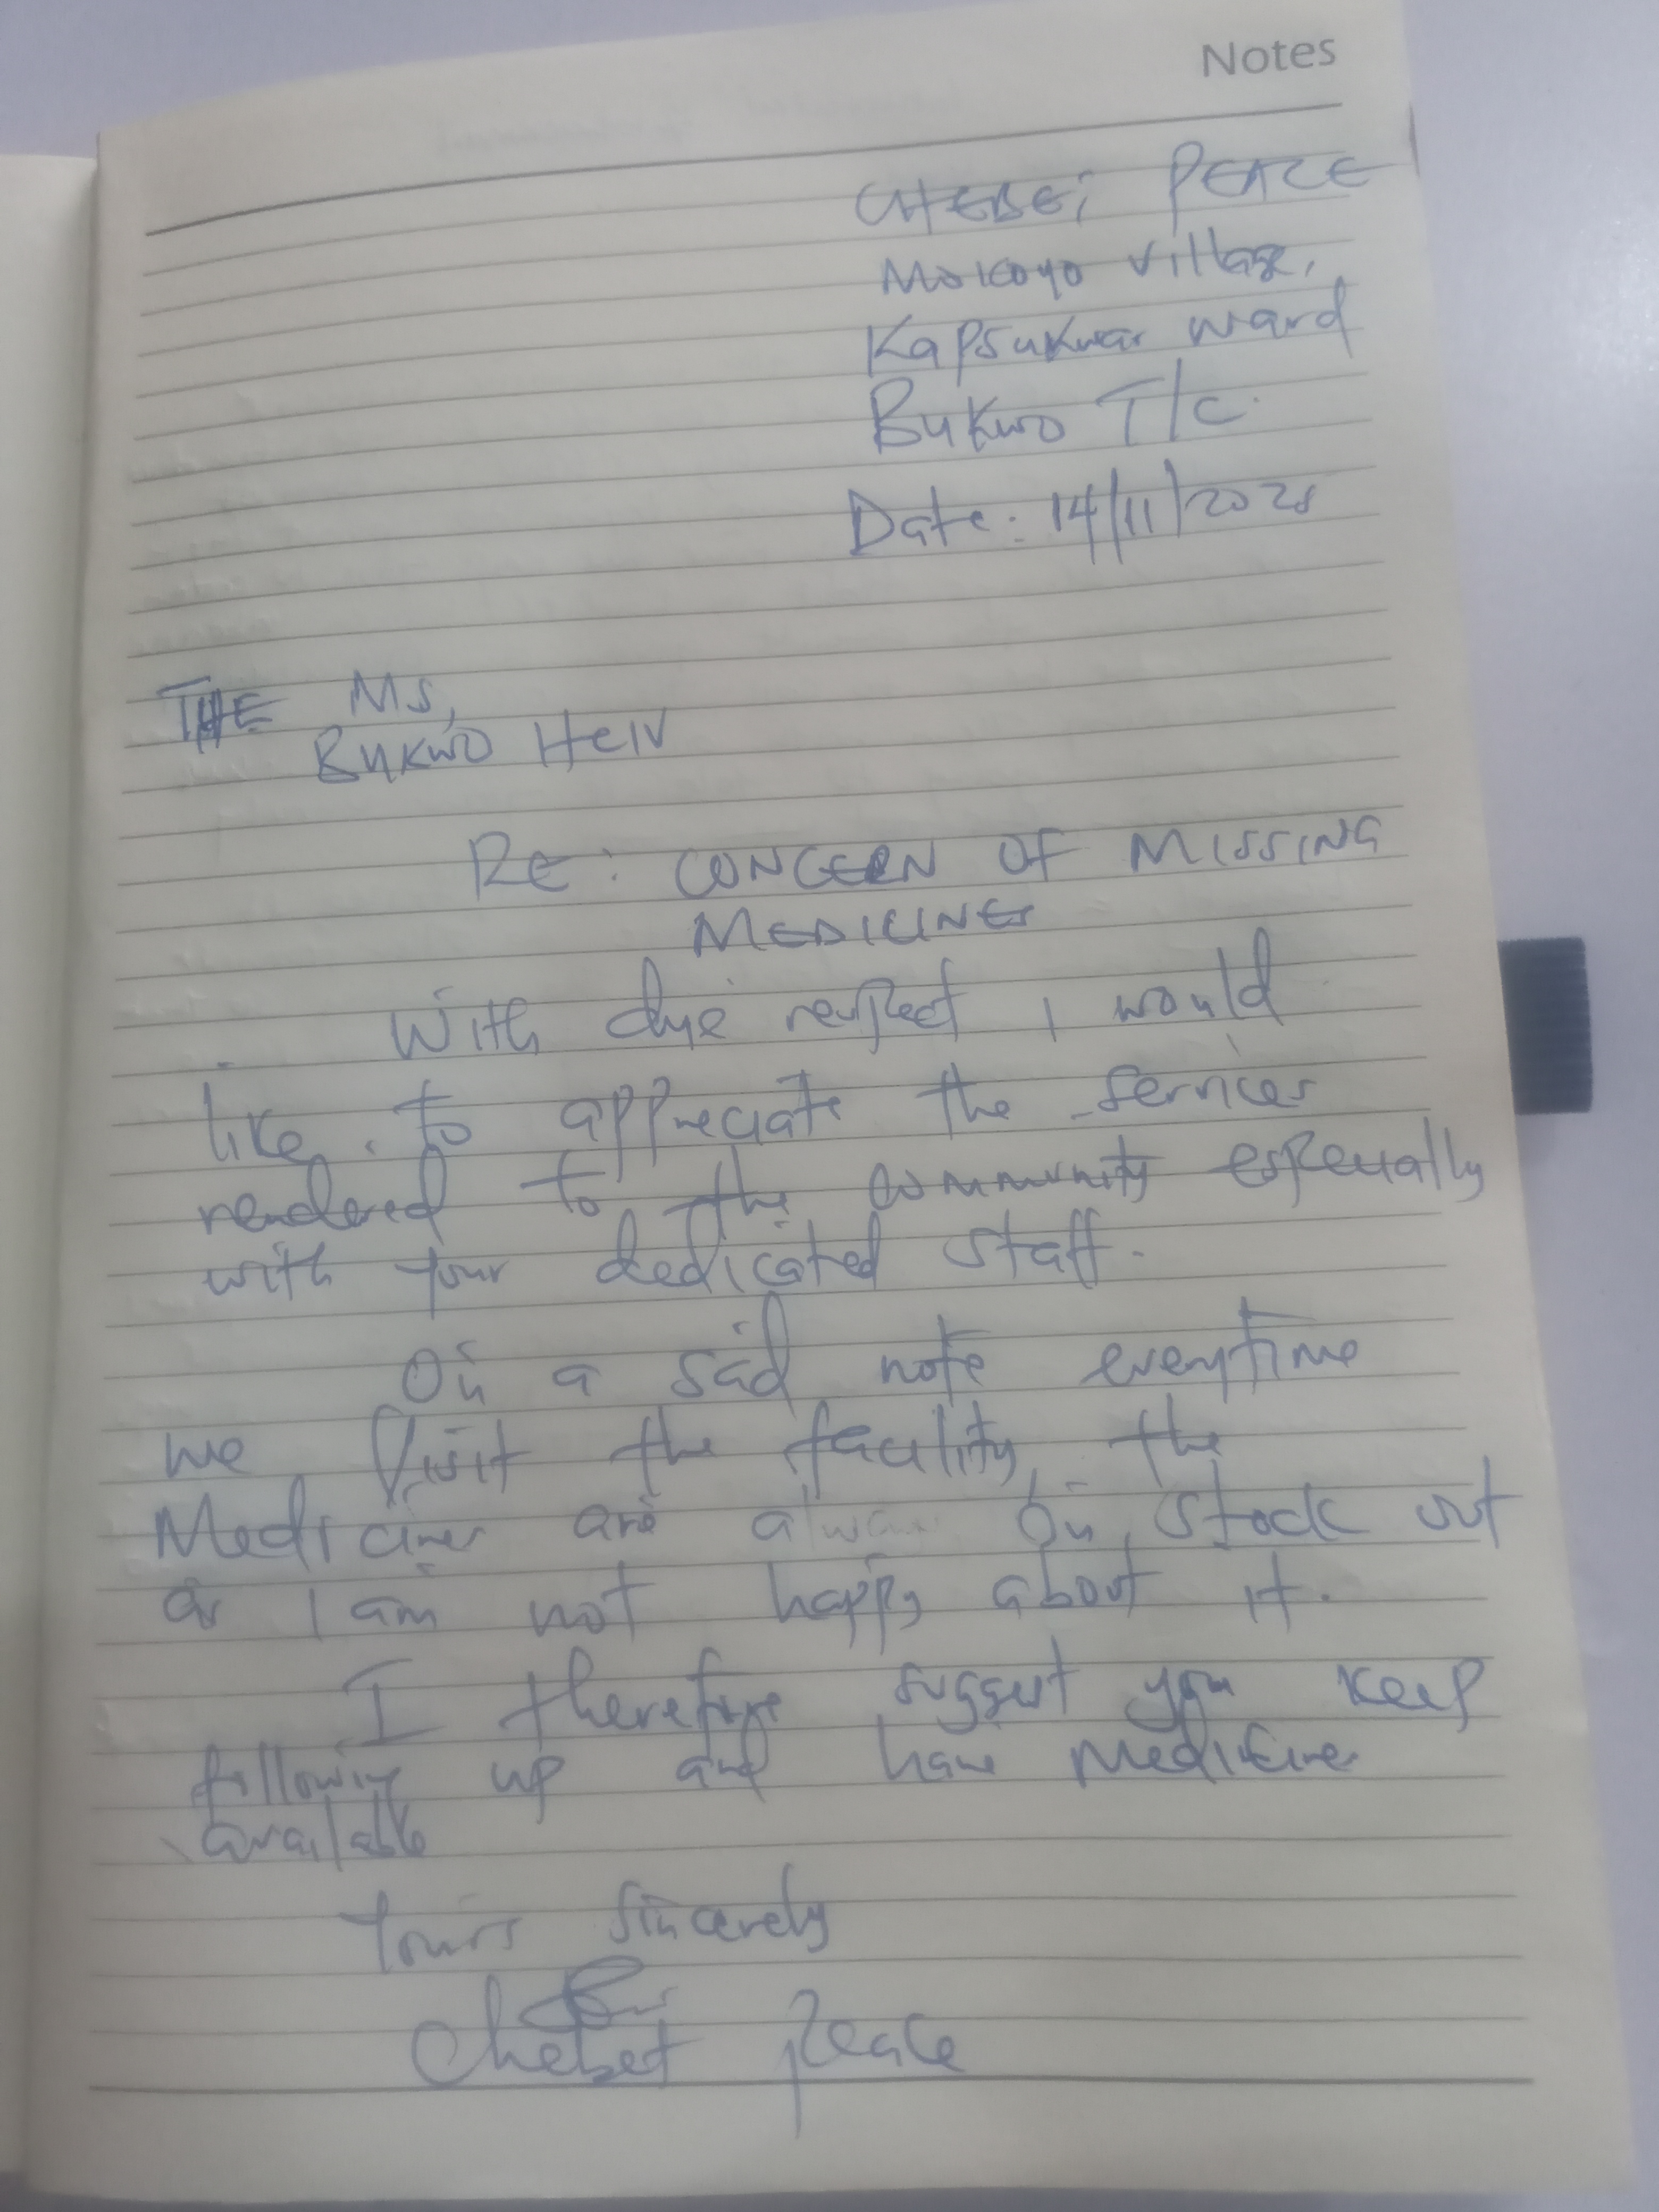 Notes
CHEBET PEACE
Mokoyo village,
Kapsukwar ward
Bukwo T/C.
Date: 14/11/2025
THE MS,
BUKWO HCIV
RE: CONCERN OF MISSING
MEDICINES
With due respect I would
like to appreciate the services
rendered to the community especially
with your dedicated staff.
On a sad note everytime
we visit the facility, the
Medicines are always on stock out
& I am not happy about it.
I therefore suggest you keep
following up and have medicines
available
Yours Sincerely
Chebet Peace